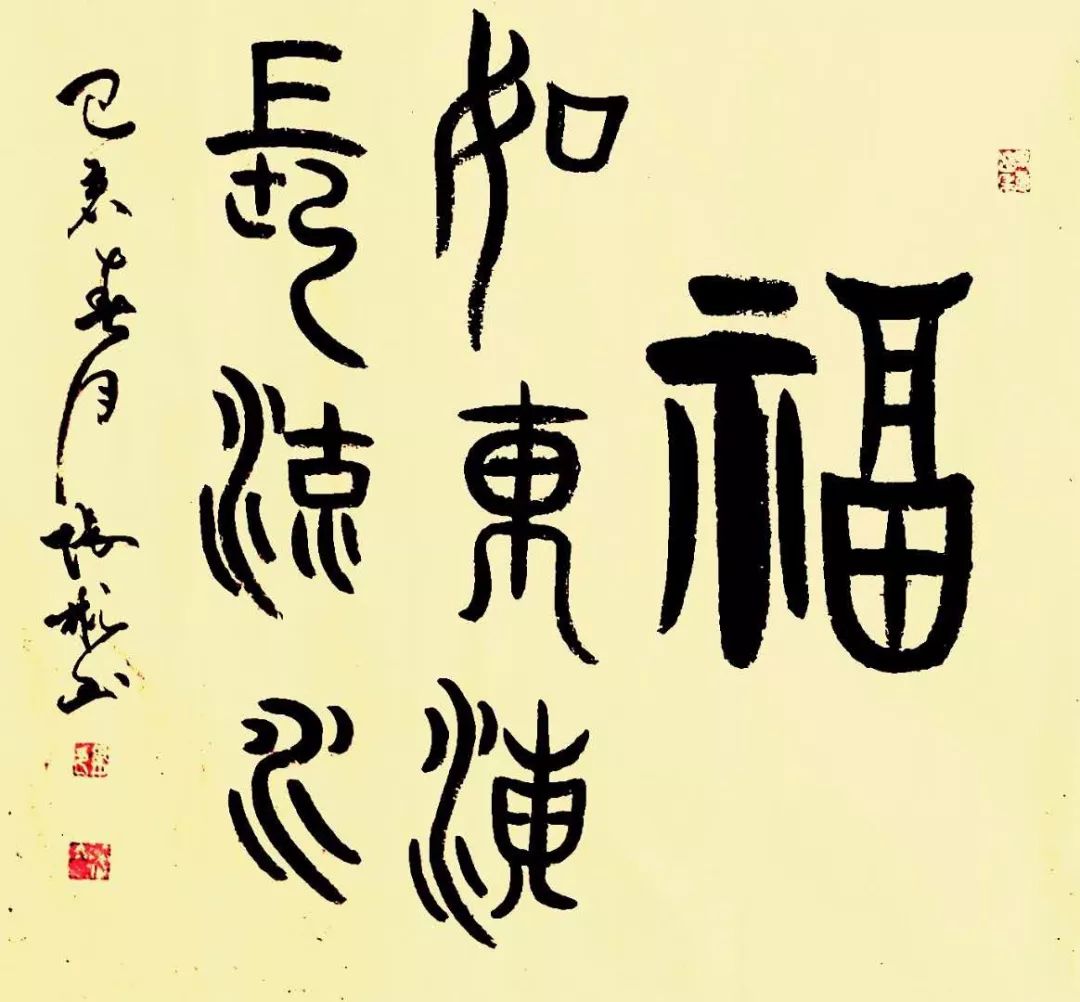 福
如東海
長流水
己亥春月